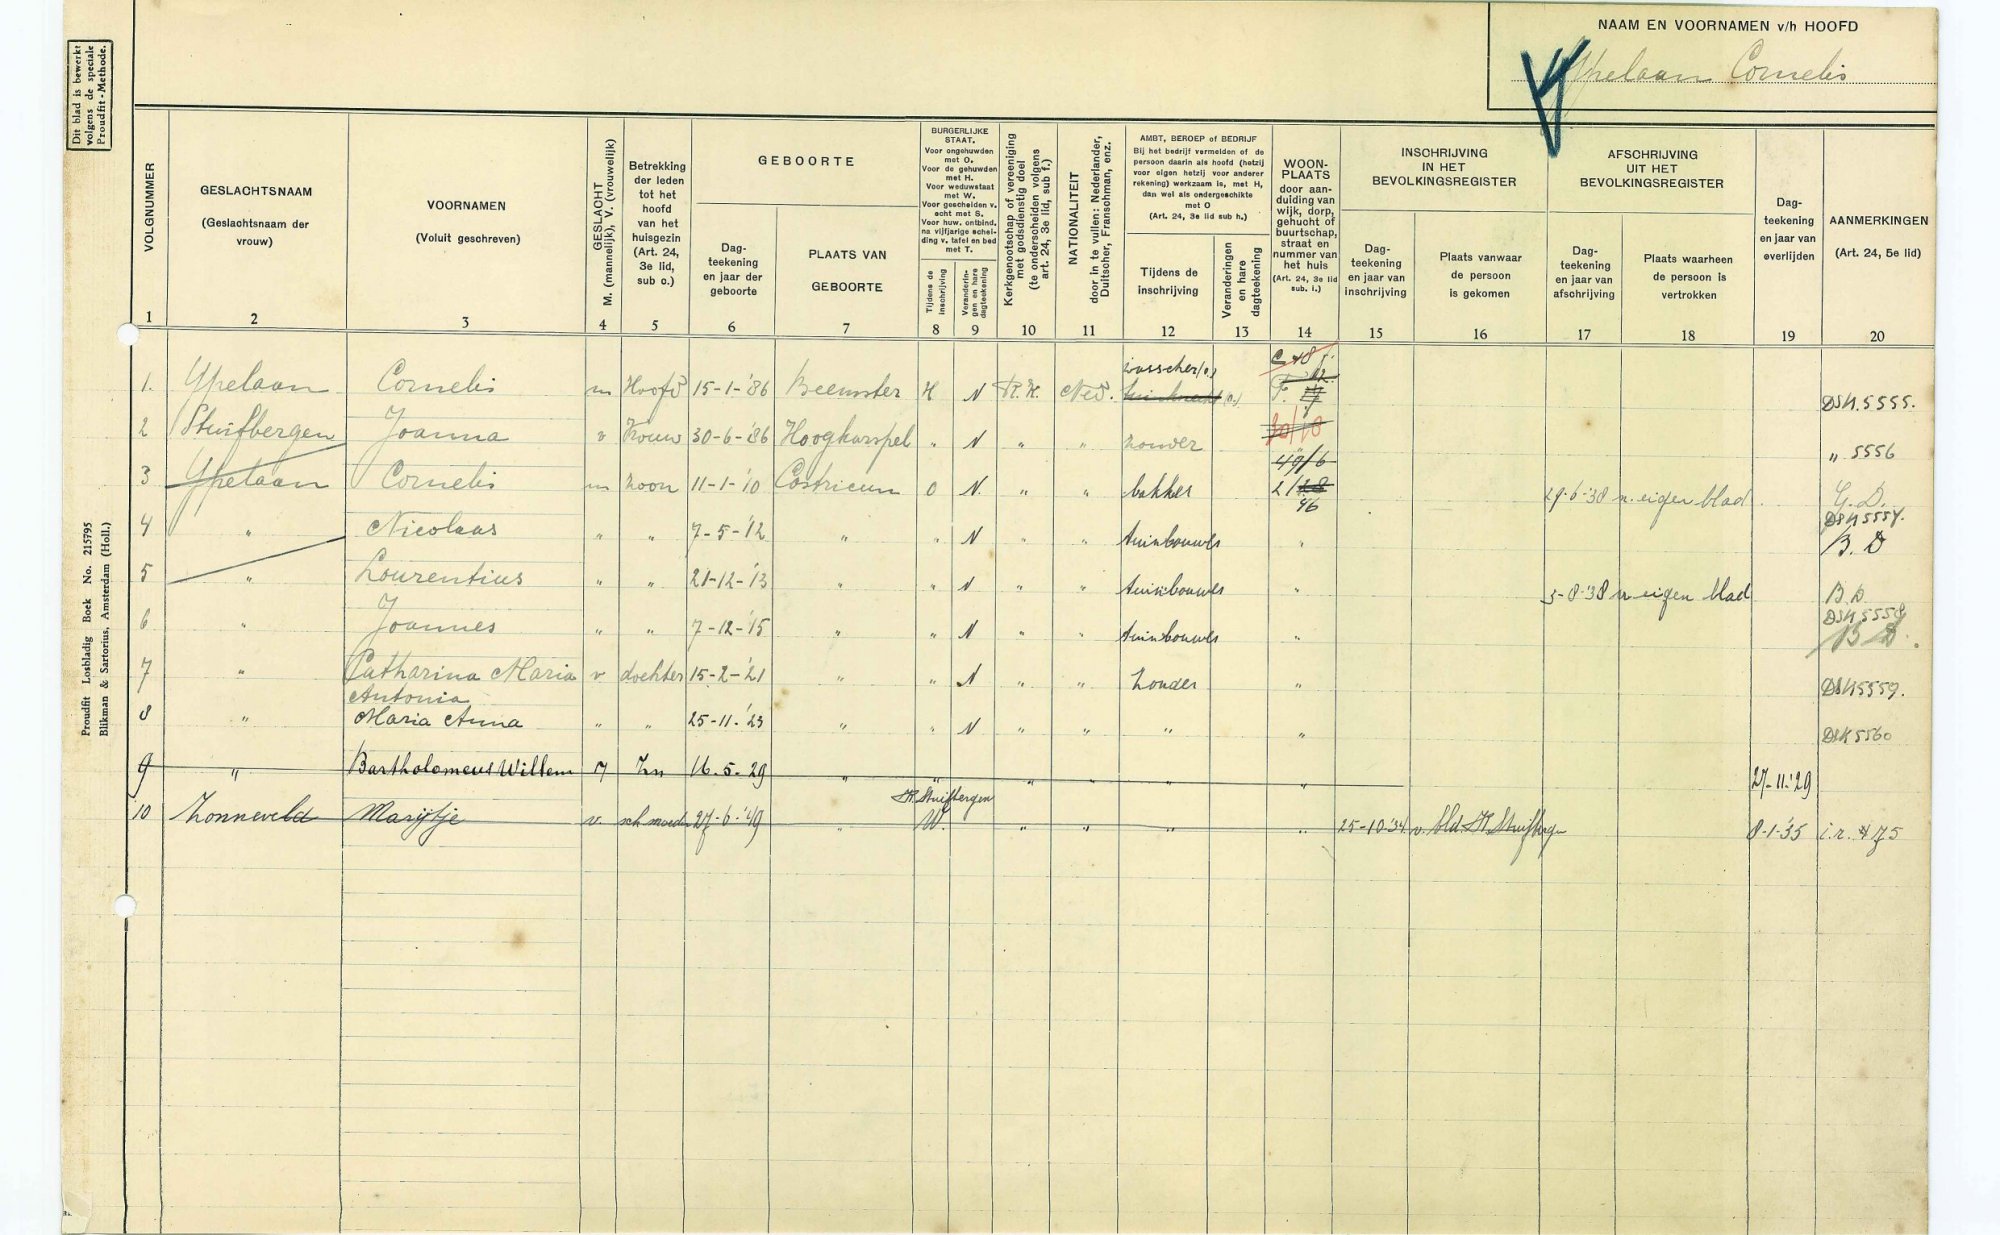 Dit blad is bewerkt
volgens de speciale
Proudfit-Methode.
NAAM EN VOORNAMEN v/h HOOFD
Ypelaan Cornelis
VOLGNUMMER
GESLACHTSNAAM
(Geslachtsnaam der
vrouw)
VOORNAMEN
(Voluit geschreven)
GESLACHT
M. (mannelijk), V. (vrouwelijk)
Betrekking
der leden
tot het
hoofd
van het
huisgezin
(Art. 24,
3e lid,
sub o.)
GEBOORTE
Dag-
teekening
en jaar der
geboorte
PLAATS VAN
GEBOORTE
BURGERLIJKE
STAAT.
Voor ongehuwden
met O.
Voor de gehuwden
met H.
Voor weduwstaat
met W.
Voor gescheiden v.
echt met S.
Voor huw. ontbind.
na vijfjarige schei-
ding v. tafel en bed
met T.
Tijdens de
inschrijving
Veranderin-
gen en hare
dagteekening
Kerkgenootschap of vereeniging
met godsdienstig doel
(te onderscheiden volgens
art. 24, 3e lid, sub f.)
NATIONALITEIT
door in te vullen: Nederlander,
Duitscher, Franschman, enz.
AMBT, BEROEP of BEDRIJF
Bij het bedrijf vermelden of de
persoon daarin als hoofd (hetzij
voor eigen hetzij voor anderer
rekening) werkzaam is, met H,
dan wel als ondergeschikte
met O
(Art. 24, 3e lid sub h.)
Tijdens de
inschrijving
Veranderingen
en hare
dagteekening
WOON-
PLAATS
door aan-
duiding van
wijk, dorp,
gehucht of
buurtschap,
straat en
nummer van
het huis
(Art. 24, 3e lid
sub. i.)
INSCHRIJVING
IN HET
BEVOLKINGSREGISTER
Dag-
teekening
en jaar van
inschrijving
Plaats vanwaar
de persoon
is gekomen
AFSCHRIJVING
UIT HET
BEVOLKINGSREGISTER
Dag-
teekening
en jaar van
afschrijving
Plaats waarheen
de persoon is
vertrokken
Dag-
teekening
en jaar van
overlijden
AANMERKINGEN
(Art. 24, 5e lid)
1 2 3 4 5 6 7 8 9 10 11 12 13 14 15 16 17 18 19 20
wasscher (o.)
1. Ypelaan Cornelis m Hoofd 15-1-'86 Beemster H N R.K. Ned. tuinknecht (o.) DSK.5555.
2 Stuifbergen Joanna v Vrouw 30-6-'86 Hoogkarspel " N " " zonder 20/10 " 5556
49/6
3 Ypelaan Cornelis m zoon 11-1-'10 Castricum O N. " " bakker 29-6-'38 n. eigen blad G.D.
46
DSK5557.
4 " Nicolaas " " 7-5-'12 " " N " " tuinbouwer " B.D
5 " Lourentius " " 21-12-'13 " " N " " tuinbouwer " 5-8-'38 n eigen blad B.D.
DSK5558
6 " Joannes " " 7-12-'15 " " N " " tuinbouwer " B D.
7 " Catharina Maria v dochter 15-2-'21 " " N " " zonder " DSK5559.
Antonia
8 " Maria Anna " " 25-11-'23 " " N " " " " DSK5560
9 " Bartholomeus Willem M Zn 16.5.29 " " " " " " 27-11-'29
K. Stuifbergen
10 Zonneveld Marijtje v. sch. moed 27-6-'49 " W. " " " " 25-10-'34 v. bld. K. Stuifbergen 8-1-'35 i.r. 475
Proudfit Losbladig Boek No. 215795
Blikman & Sartorius, Amsterdam (Holl.)